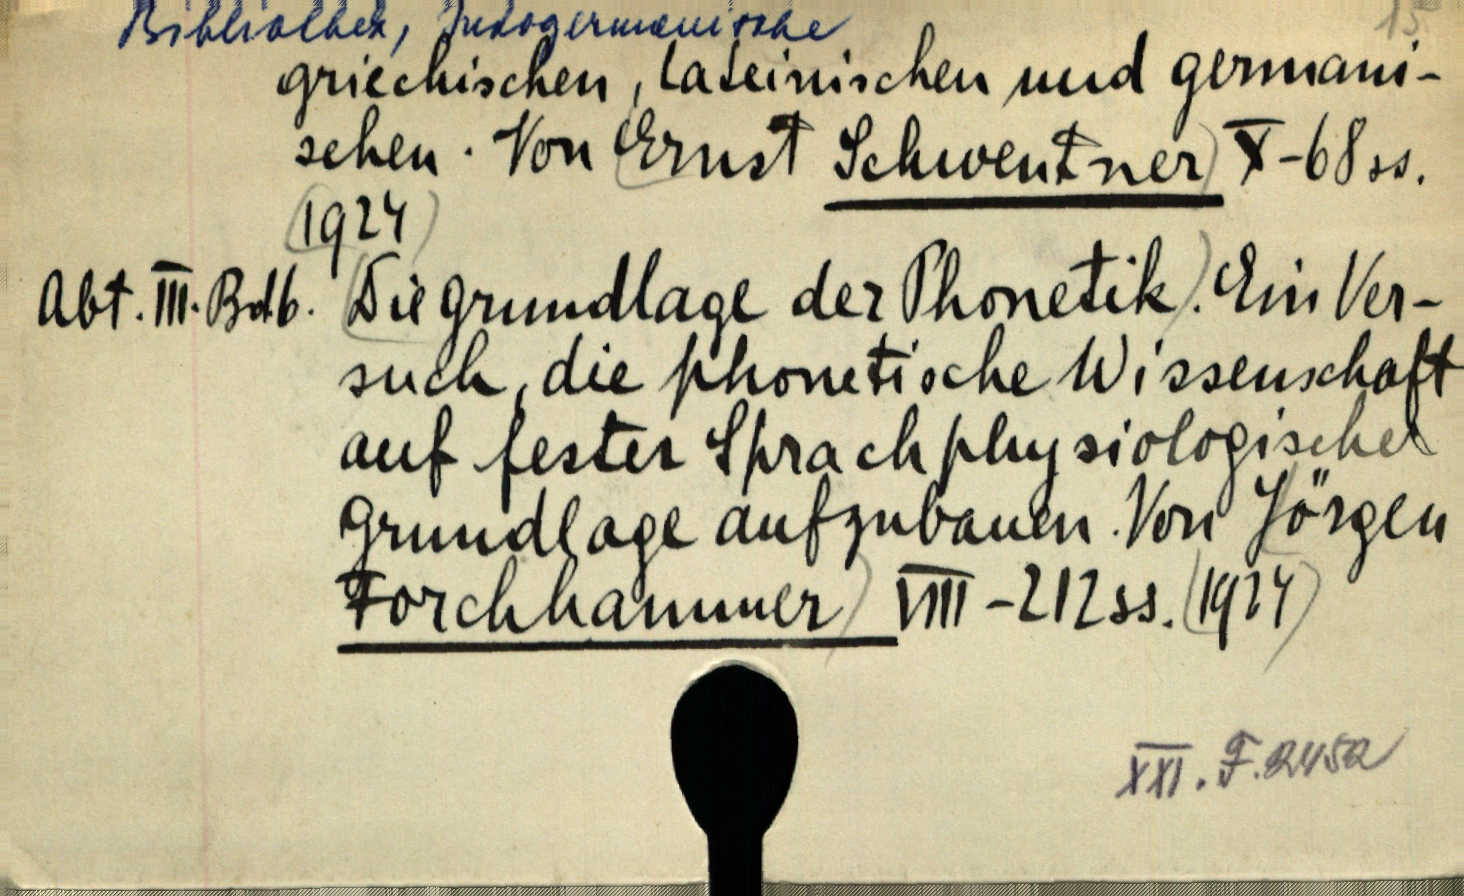 Bibliothek, Indogermanische 15
griechischen, lateinischen und germani-
schen. Von (Ernst Schwentner) X-68 ss.
(1924)
Abt. III. Bd 6. (Die Grundlage der Phonetik). Ein Ver-
such, die phonetische Wissenschaft
auf fester Sprachphysiologischer
Grundlage aufzubauen. Von Jörgen
Forchhammer) VIII-212 ss. (1924)
XXI. F. 2452